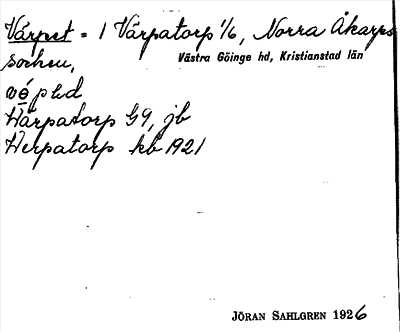 Värpet = 1 Värpatorp 1/6, Norra Åkarps
socken,
Västra Göinge hd, Kristianstad län
Wärpatorp G9, jb
Werpatorp kb 1921
JÖRAN SAHLGREN 1926